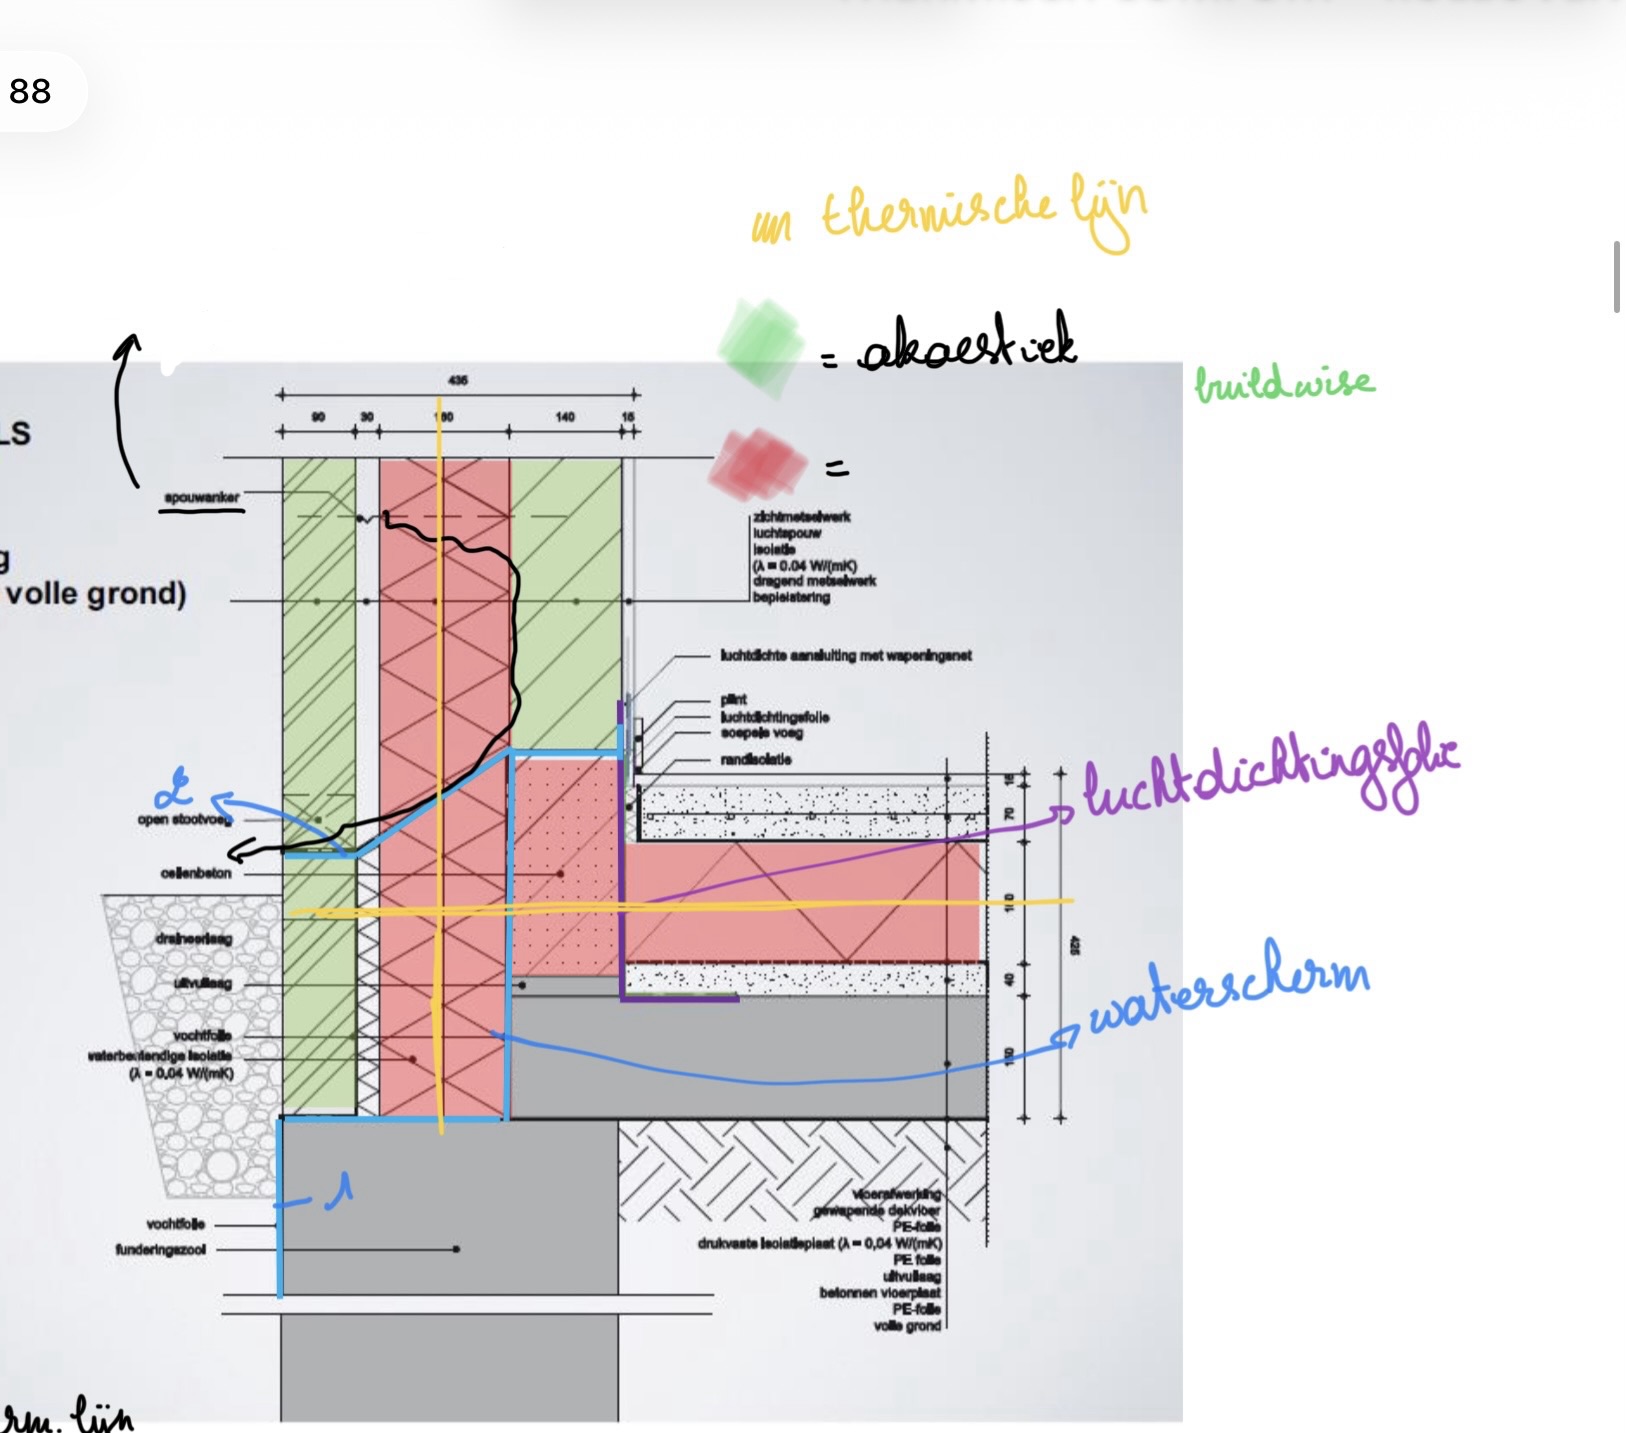 88
un thermische lijn
= akoestiek
buildwise
=
LS
g
volle grond)
435
90 30 180 140 15
spouwanker
zichtmetselwerk
luchtspouw
isolatie
(λ = 0.04 W/(mK)
dragend metselwerk
bepleistering
luchtdichte aansluiting met wapeningsnet
plint
luchtdichtingsfolie
soepele voeg
randisolatie
luchtdichtingsfolie
2
open stootvoeg
cellenbeton
draineerlaag
uitvullaag
vochtfolie
waterbestendige isolatie
(λ = 0,04 W/(mK)
15
70
40
425
waterscherm
1
vochtfolie
funderingszool
vloerafwerking
gewapende dekvloer
PE-folie
drukvaste isolatieplaat (λ = 0,04 W/(mK)
PE folie
uitvullaag
betonnen vloerplaat
PE-folie
volle grond
rm. lijn